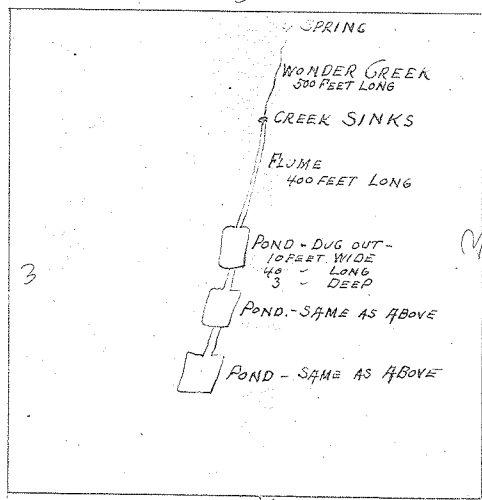 SPRING
WONDER CREEK
500 FEET LONG
CREEK SINKS
FLUME
400 FEET LONG
POND - DUG OUT -
10 FEET WIDE
40 " LONG
3 " DEEP
3
POND. - SAME AS ABOVE
POND - SAME AS ABOVE